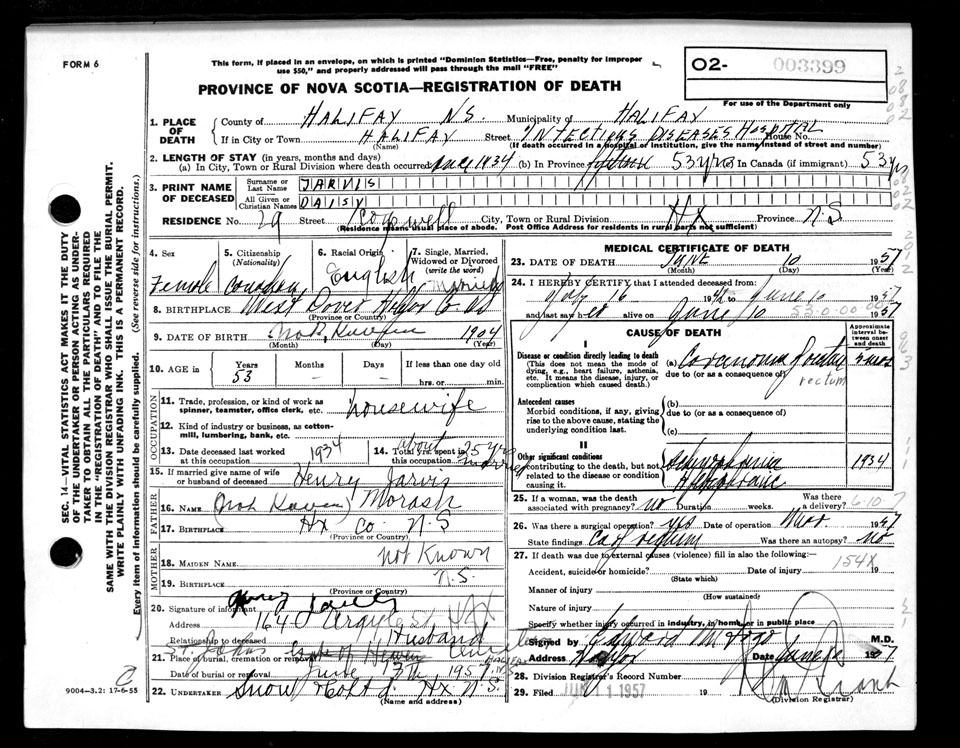 FORM 6
This form, if placed in an envelope, on which is printed "Dominion Statistics—Free, penalty for improper
use $50," and properly addressed will pass through the mail "FREE"
O2- 003399
For use of the Department only
PROVINCE OF NOVA SCOTIA—REGISTRATION OF DEATH
1. PLACE OF DEATH
County of HALIFAX N.S. Municipality of HALIFAX
If in City or Town HALIFAX Street INFECTIOUS DISEASES HOSPITAL House No.
(Name) (If death occurred in a hospital or institution, give the name instead of street and number)
2. LENGTH OF STAY (in years, months and days)
(a) In City, Town or Rural Division where death occurred 1934 (b) In Province 53 yrs In Canada (if immigrant) 53 yrs
3. PRINT NAME OF DECEASED
Surname or Last Name JARVIS
All Given or Christian Names DAISY
RESIDENCE No. 29 Street Cogswell City, Town or Rural Division Hx Province N.S.
(Residence means usual place of abode. Post Office Address for residents in rural parts not sufficient)
4. Sex Female
5. Citizenship (Nationality) Canadian
6. Racial Origin English
7. Single, Married, Widowed or Divorced (write the word) Married
8. BIRTHPLACE West Dover Hfx Co. NS
(Province or Country)
9. DATE OF BIRTH Not Known 1904
(Month) (Day) (Year)
10. AGE Years 53 Months – Days – If less than one day old hrs. or min.
OCCUPATION
11. Trade, profession, or kind of work as spinner, teamster, office clerk, etc. housewife
12. Kind of industry or business, as cotton-mill, lumbering, bank, etc.
13. Date deceased last worked at this occupation 1934
14. Total yrs. spent in this occupation about 25 yrs married
15. If married give name of wife or husband of deceased Henry Jarvis
FATHER
16. NAME (Not Known) Morash
17. BIRTHPLACE Hx Co. N.S
(Province or Country)
MOTHER
18. MAIDEN NAME Not Known
19. BIRTHPLACE N.S.
(Province or Country)
20. Signature of informant Henry Jarvis
Address 164 Argyle St Hx
Relationship to deceased Husband
21. Place of burial, cremation or removal St. Johns
Date of burial or removal June 1957
22. UNDERTAKER Snow Hx N.S.
(Name and address)
MEDICAL CERTIFICATE OF DEATH
23. DATE OF DEATH June 10 1957
(Month) (Day) (Year)
24. I HEREBY CERTIFY that I attended deceased from:
July 16 to June 10 1957
and last saw her alive on June 10 1957
CAUSE OF DEATH
Approximate interval between onset and death
I
Disease or condition directly leading to death
(This does not mean the mode of dying, e.g., heart failure, asthenia, etc. It means the disease, injury, or complication which caused death.)
(a) Carcinoma of
due to (or as a consequence of) rectum
Antecedent causes
Morbid conditions, if any, giving rise to the above cause, stating the underlying condition last.
(b)
due to (or as a consequence of)
(c)
II
Other significant conditions contributing to the death, but not related to the disease or condition causing it.
Schizophrenia
Hebephrenic
1934
25. If a woman, was the death associated with pregnancy? no Duration weeks. Was there a delivery?
6-10-7
26. Was there a surgical operation? yes Date of operation 1957
State findings Ca of rectum Was there an autopsy? no
27. If death was due to external causes (violence) fill in also the following:—
154X
Accident, suicide or homicide? Date of injury 19
(State which)
Manner of injury
(How sustained)
Nature of injury
Specify whether injury occurred in industry, in home, or in public place
Signed by Edward M.D.
Address Date June 1957
28. Division Registrar's Record Number
29. Filed JUN 1 1957 19
(Division Registrar)
SEC. 14—VITAL STATISTICS ACT MAKES IT THE DUTY
OF THE UNDERTAKER OR PERSON ACTING AS UNDER-
TAKER TO OBTAIN ALL THE PARTICULARS REQUIRED
IN THE "REGISTRATION OF DEATH" AND TO FILE THE
SAME WITH THE DIVISION REGISTRAR WHO SHALL ISSUE THE BURIAL PERMIT.
WRITE PLAINLY WITH UNFADING INK. THIS IS A PERMANENT RECORD.
Every item of information should be carefully supplied. (See reverse side for instructions.)
9004—3.2: 17-6-55